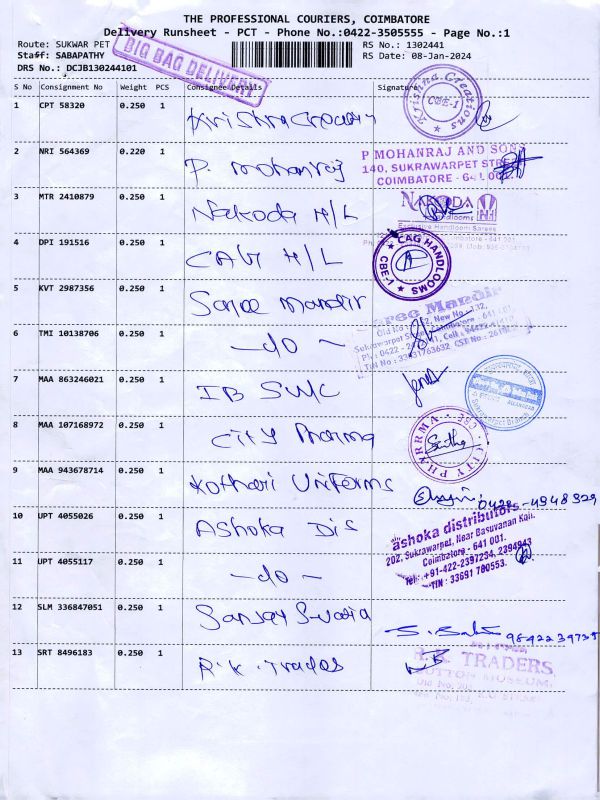 THE PROFESSIONAL COURIERS, COIMBATORE
Delivery Runsheet - PCT - Phone No.:0422-3505555 - Page No.:1
Route: SUKWAR PET RS No.: 1302441
Staff: SABAPATHY RS Date: 08-Jan-2024
DRS No.: DCJB130244101
BIG BAG DELIVERY
S No Consignment No Weight PCS Consignee Details Signature
1 CPT 58320 0.250 1 Krishna Creations
Krishna Creations
CBE-1
2 NRI 564369 0.220 1 P. Mohanraj
P MOHANRAJ AND SONS
140, SUKRAWARPET STREET
COIMBATORE - 641 001.
3 MTR 2410879 0.250 1 Nakoda H/L
NAKODA
Handlooms
Exclusive Handloom Sarees
4 DPI 191516 0.250 1 CAG H/L
CAG HANDLOOMS
CBE-1
5 KVT 2987356 0.250 1 Saree Mandir
Saree Mandir
6 TMI 10138706 0.250 1 -do-
7 MAA 863246021 0.250 1 IB SWC
Sukrawarpet Branch
8 MAA 107168972 0.250 1 City Pharma
CITY PHARRMA
CBE
9 MAA 943678714 0.250 1 Kothari Uniforms
10 UPT 4055026 0.250 1 Ashoka Dis
ashoka distributors
202, Sukrawarpet, Near Basuvanan Koil,
Coimbatore - 641 001.
Tel: +91-422-2397234, 2394943
TIN : 33691780553.
11 UPT 4055117 0.250 1 -do-
12 SLM 336847051 0.250 1
13 SRT 8496183 0.250 1 R.K. Trades
R.K. TRADERS,
COTTON MUSEUM,